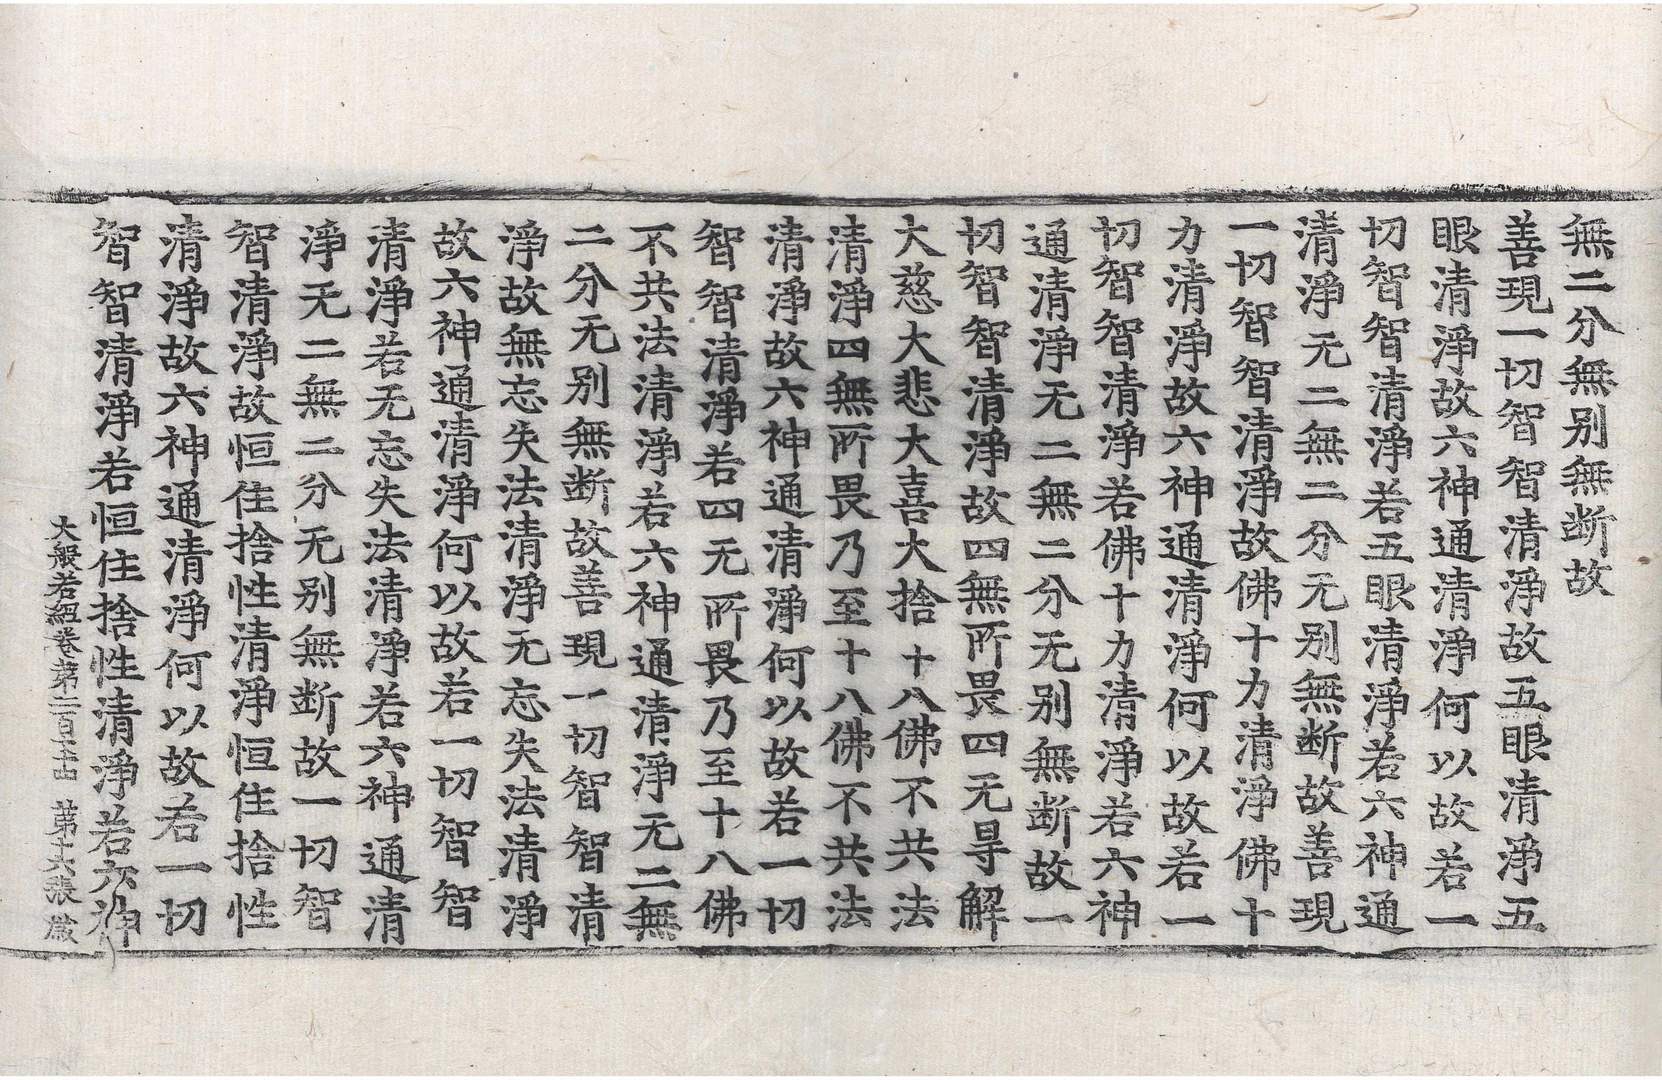 無二分無别無断故
善現一切智智清淨故五眼清淨五
眼清淨故六神通清淨何以故若一
切智智清淨若五眼清淨若六神通
清淨无二無二分无别無断故善現
一切智智清淨故佛十力清淨佛十
力清淨故六神通清淨何以故若一
切智智清淨若佛十力清淨若六神
通清淨无二無二分无别無断故一
切智智清淨故四無所畏四无㝵解
大慈大悲大喜大捨十八佛不共法
清淨四無所畏乃至十八佛不共法
清淨故六神通清淨何以故若一切
智智清淨若四无所畏乃至十八佛
不共法清淨若六神通清淨无二無
二分无别無断故善現一切智智清
淨故無忘失法清淨无忘失法清淨
故六神通清淨何以故若一切智智
清淨若无忘失法清淨若六神通清
淨无二無二分无别無断故一切智
智清淨故恒住捨性清淨恒住捨性
清淨故六神通清淨何以故若一切
智智清淨若恒住捨性清淨若六神
大般若経卷第二百五十四 第十六張